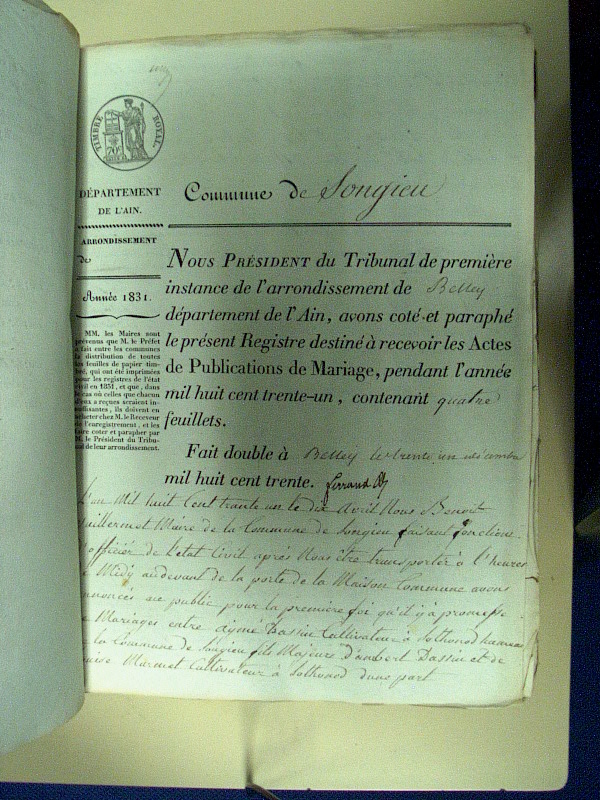 TIMBRE ROYAL
70c
DÉPARTEMENT
DE L'AIN.
ARRONDISSEMENT
de
Année 1831.
MM. les Maires sont
prévenus que M. le Préfet
a fait entre les communes
la distribution de toutes
les feuilles de papier tim-
bré, qui ont été imprimées
pour les registres de l'état
civil en 1831, et que, dans
le cas où celles que chacun
d'eux a reçues seraient in-
suffisantes, ils doivent en
acheter chez M. le Receveur
de l'enregistrement, et les
faire coter et parapher par
M. le Président du Tribu-
nal de leur arrondissement.
Commune de Songieu
NOUS PRÉSIDENT du Tribunal de première
instance de l'arrondissement de Belley
département de l'Ain, avons coté et paraphé
le présent Registre destiné à recevoir les Actes
de Publications de Mariage, pendant l'année
mil huit cent trente-un, contenant quatre
feuillets.
Fait double à Belley le trente un décembre
mil huit cent trente. ferrand
L'an Mil huit Cent trante un le dix Avril Nous Benoit
Guillermet Maire de la Commune de Songieu faisant fonctions
d'officier de l'etat Civil après Nous être transporter à l'heures
de Midy audevant de la porte de la Maison Commune avons
annoncés au public pour la première foi qu'il y à promesse
de Mariages entre Aymé Bassin Cultivateur à Sothonod hameau
de la Commune de Songieu fils Majeurs D'anbert Bassin et de
Marmet Cultivateur à Sothonod dune part